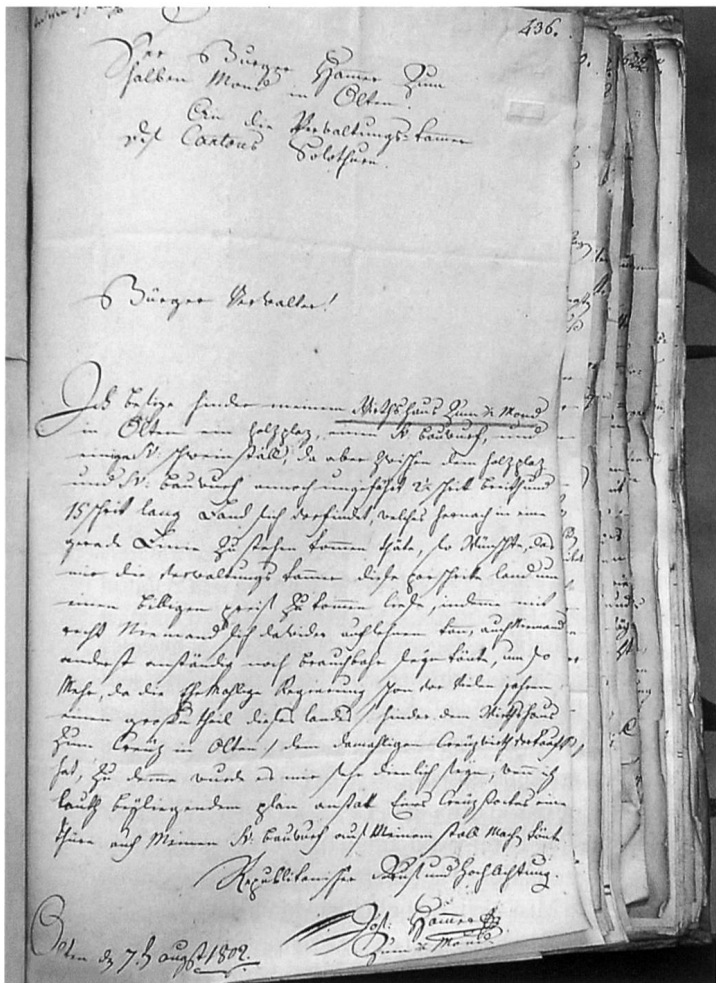 436.
Der Burger Hammer Zum
halben Mond in Olten.
An die Verwaltungs-kamer
des Cantons Solothurn.
Bürger Verwalter!
Ich besize hinder meinem Wirthshaus Zum ½ Mond
in Olten ein holzplaz, einen bauwurf, und
einige schweinställ, da aber zwischen dem holzplaz
und bauwurf annoch ungefährt 2 schrit breit und
15 schrit lang Land sich vorfindet, welches hernach in eine
gerade Linie Zu stehen kommen thäte, so Wünschte, das
mir die Verwaltungs kamer diese par schrite land um
einen billigen preiß Zu kommen ließe, indeme mit
recht Niemand sich dawider auflehnen kan, auch Niemand
anderst anständig noch brauchbahr seyn könte, um so
Mehr, da die Ehemahlige Regierung schon vor vielen jahren
einen großen theil dieses landes / hinder dem Wirthshaus
Zum Creüz in Olten / dem damahligen Creüzwirth verkauft,
hat, Zu deme wurde es mir sehr dienlich seyn, wenn ich
lauth beyliegendem plan anstatt Eines Creüzstockes eine
thüre auf Meinem bauwurf aus Meinem stall Machen könte
Republikanischer Gruß und Hochachtung.
Jos: Hammer
Zum ½ Mond.
Olten den 7t augst 1802.